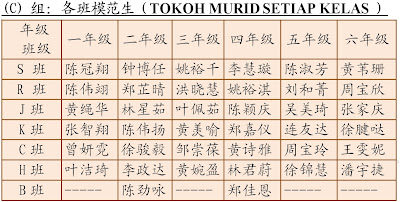 (C) 组: 各班模范生 ( TOKOH MURID SETIAP KELAS )
年级 班级 一年级 二年级 三年级 四年级 五年级 六年级
S 班 陈冠翔 钟博任 姚裕千 李慧璇 陈淑芳 黄苇珊
R 班 陈伟翊 郑芷晴 洪晓慧 姚裕淇 刘和菁 周宝欣
J 班 黄绳华 林星茹 叶佩茹 陈颖庆 吴美琦 张家庆
K 班 张智翔 陈伟扬 黄美喻 郑嘉仪 连友达 徐健哒
C 班 曾妍霓 徐骏毅 邹崇葆 黄诗雅 周宝玲 王雯妮
H 班 叶洁琦 李政达 黄婉盈 林君蔚 徐锦慧 潘宇捷
B 班 ----- 陈劲咏 ----- 郑佳恩 ----- -----